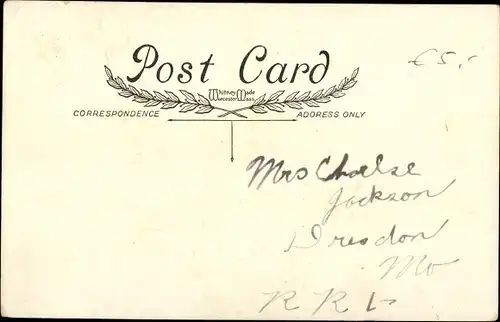 Post Card
Whitney Made
Worcester Mass.
CORRESPONDENCE
ADDRESS ONLY
€5,-
Mrs
Jackson
Dresdon
Mo
R R